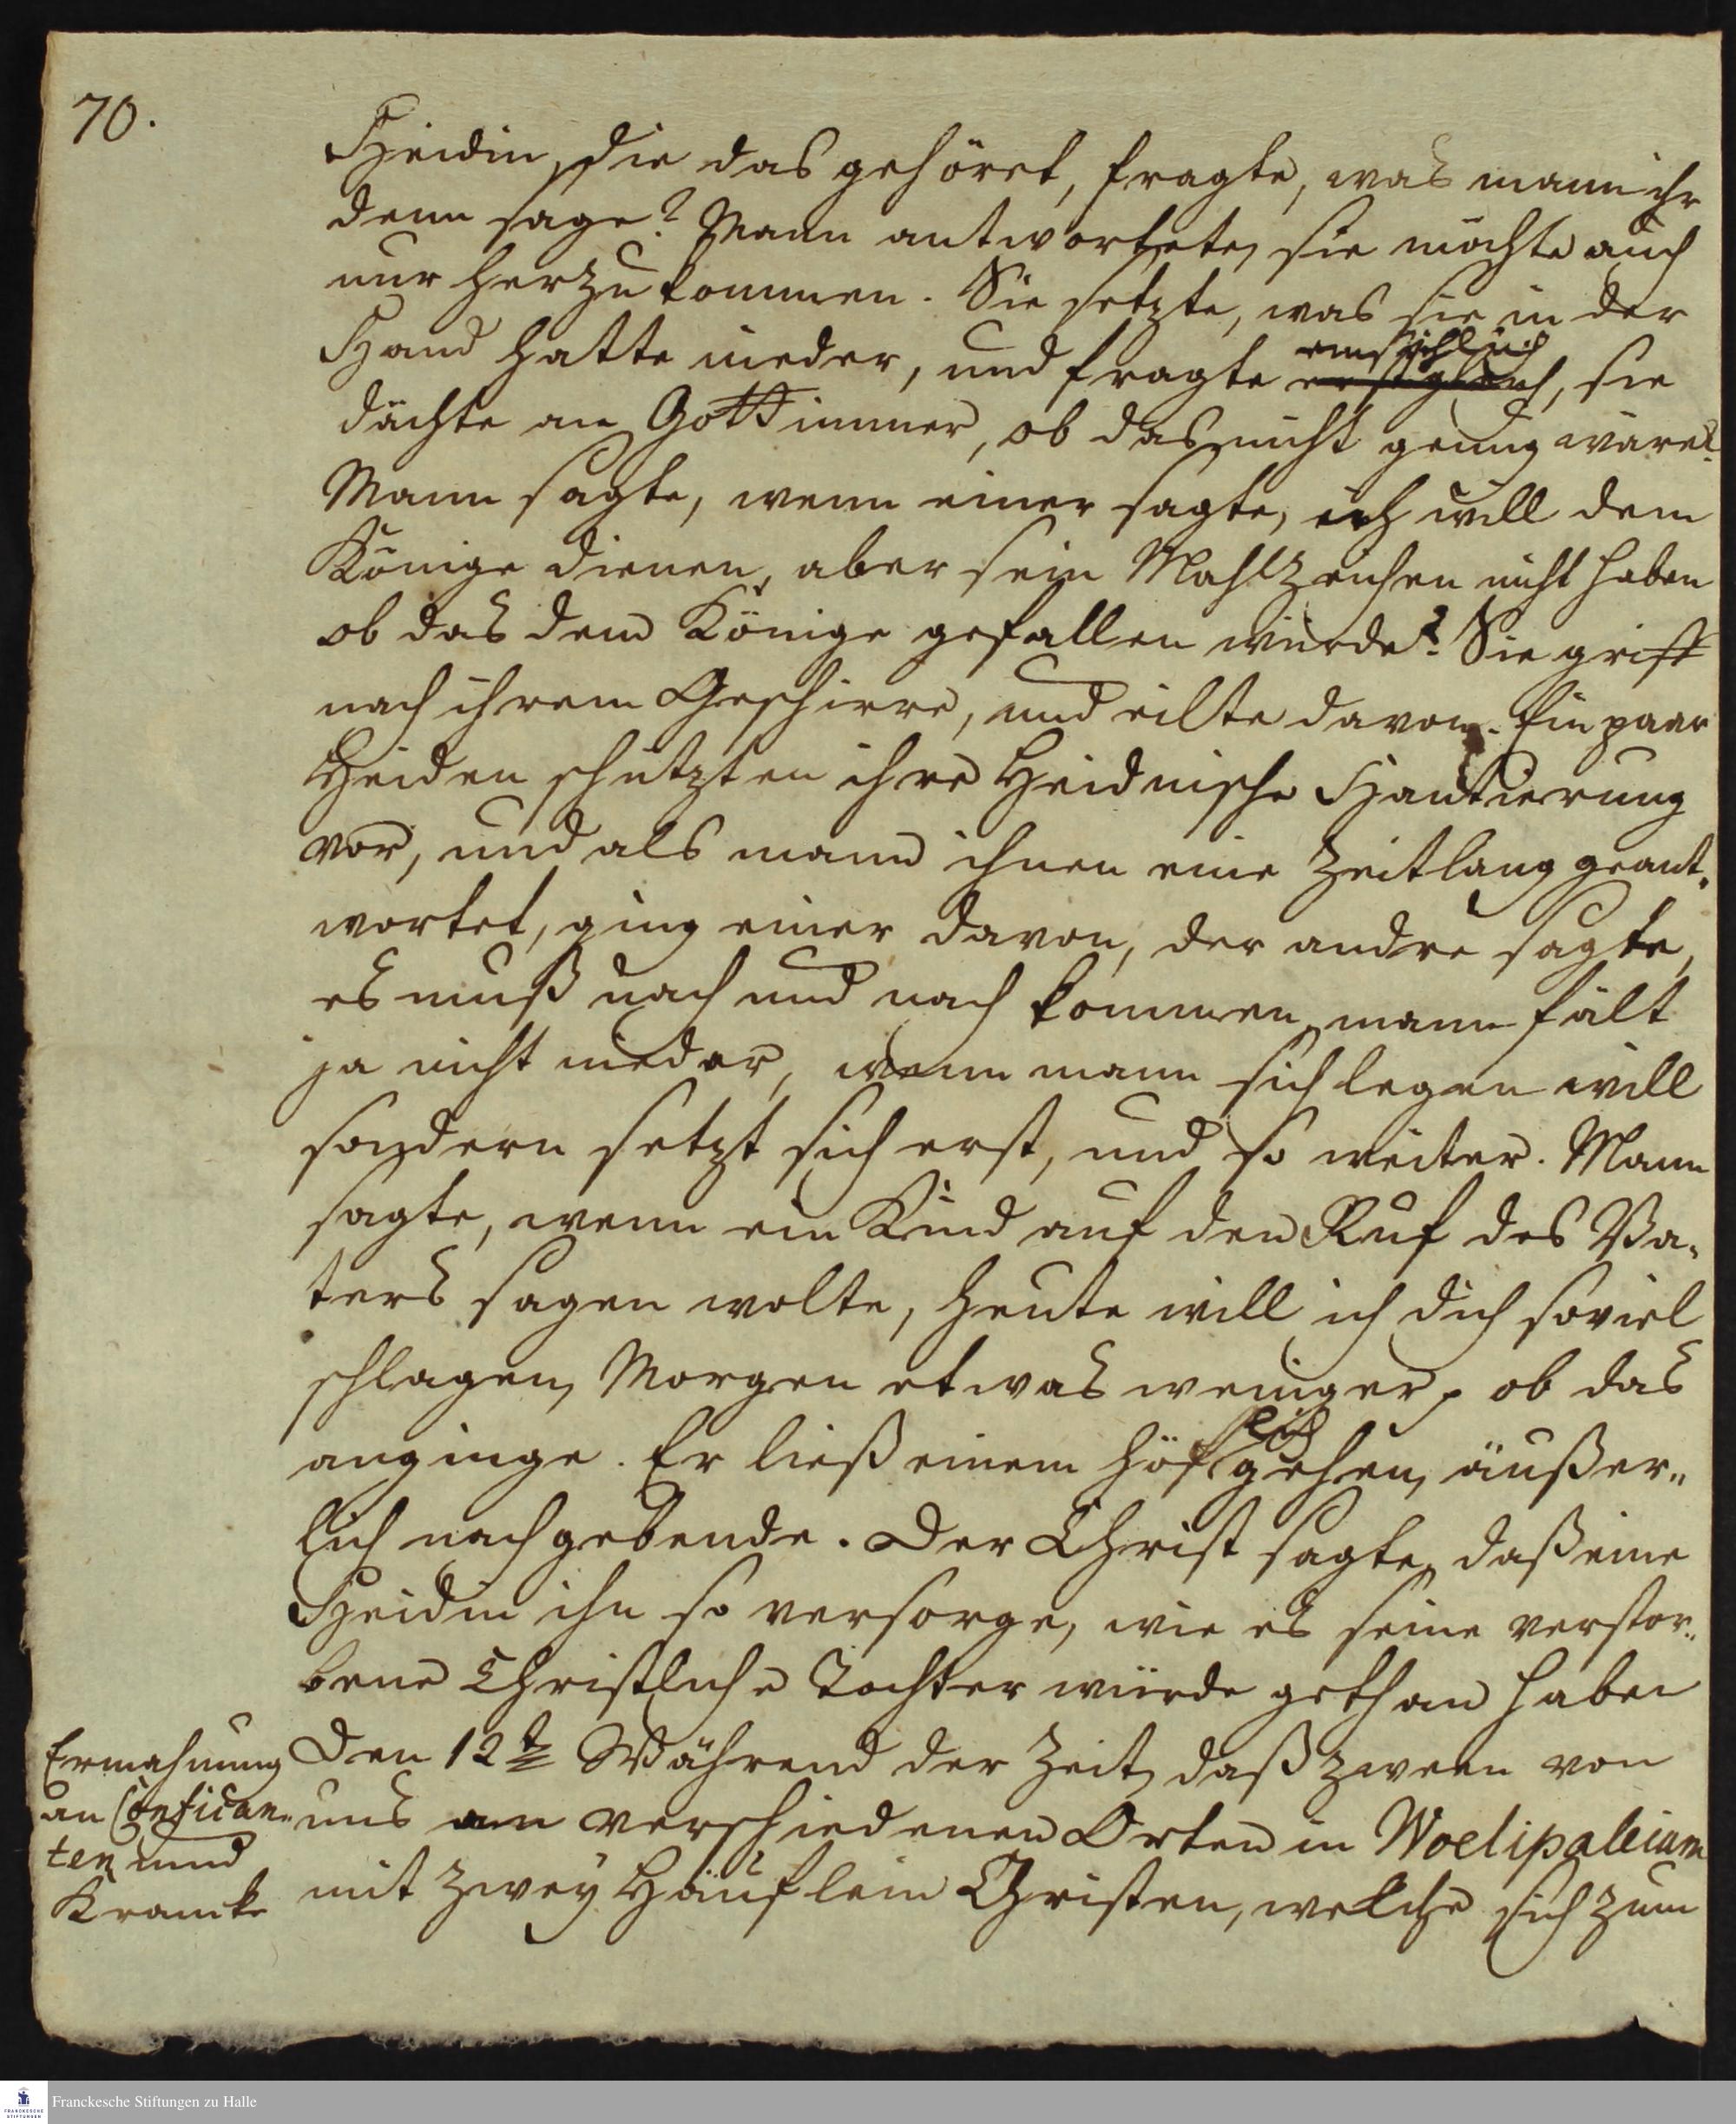 70.
Heidin, die das gehöret, fragte, was mann ihr
denn sage? Mann antwortete, sie möchte auch
nur herzu kommen. Sie setzte, was sie in der
Hand hatte nieder, und fragte, sie
dächte an Gott immer, ob das nicht genug wäre?
Mann sagte, wenn einer sagte, ich will dem
Könige dienen, aber sein Mahlzeichen nicht haben
ob das dem Könige gefallen würde? Sie griff
nach ihrem Geschirre, und eilte davon. Ein paar
Heiden schützten ihre Heidnische Hantierung
vor, und als mann ihnen eine Zeitlang geant„
wortet, ging einer davon, der andre sagte,
es muß nach und nach kommen, mann fält
ja nicht nieder, wenn mann sich legen will
sondern setzt sich erst, und so weiter. Mann
sagte, wenn ein Kind auf den Ruf des Va„
ters sagen wolte, heute will ich dich soviel
schlagen, Morgen etwas weniger, ob das
anginge. Er ließ einem höflich gehen, äußer„
lich nachgebende. Der Christ sagte, daß eine
Heidin ihn so versorge, wie es seine verstor„
bene Christliche Tochter würde gethan haben
Ermahnung
an Confican„
ten und
Krancke
Den 12t Während der Zeit, daß zween von
uns an verschiedenen Orten in Woelipaleiam
mit zwey Häuflein Christen, welche sich zum
Franckesche Stiftungen zu Halle